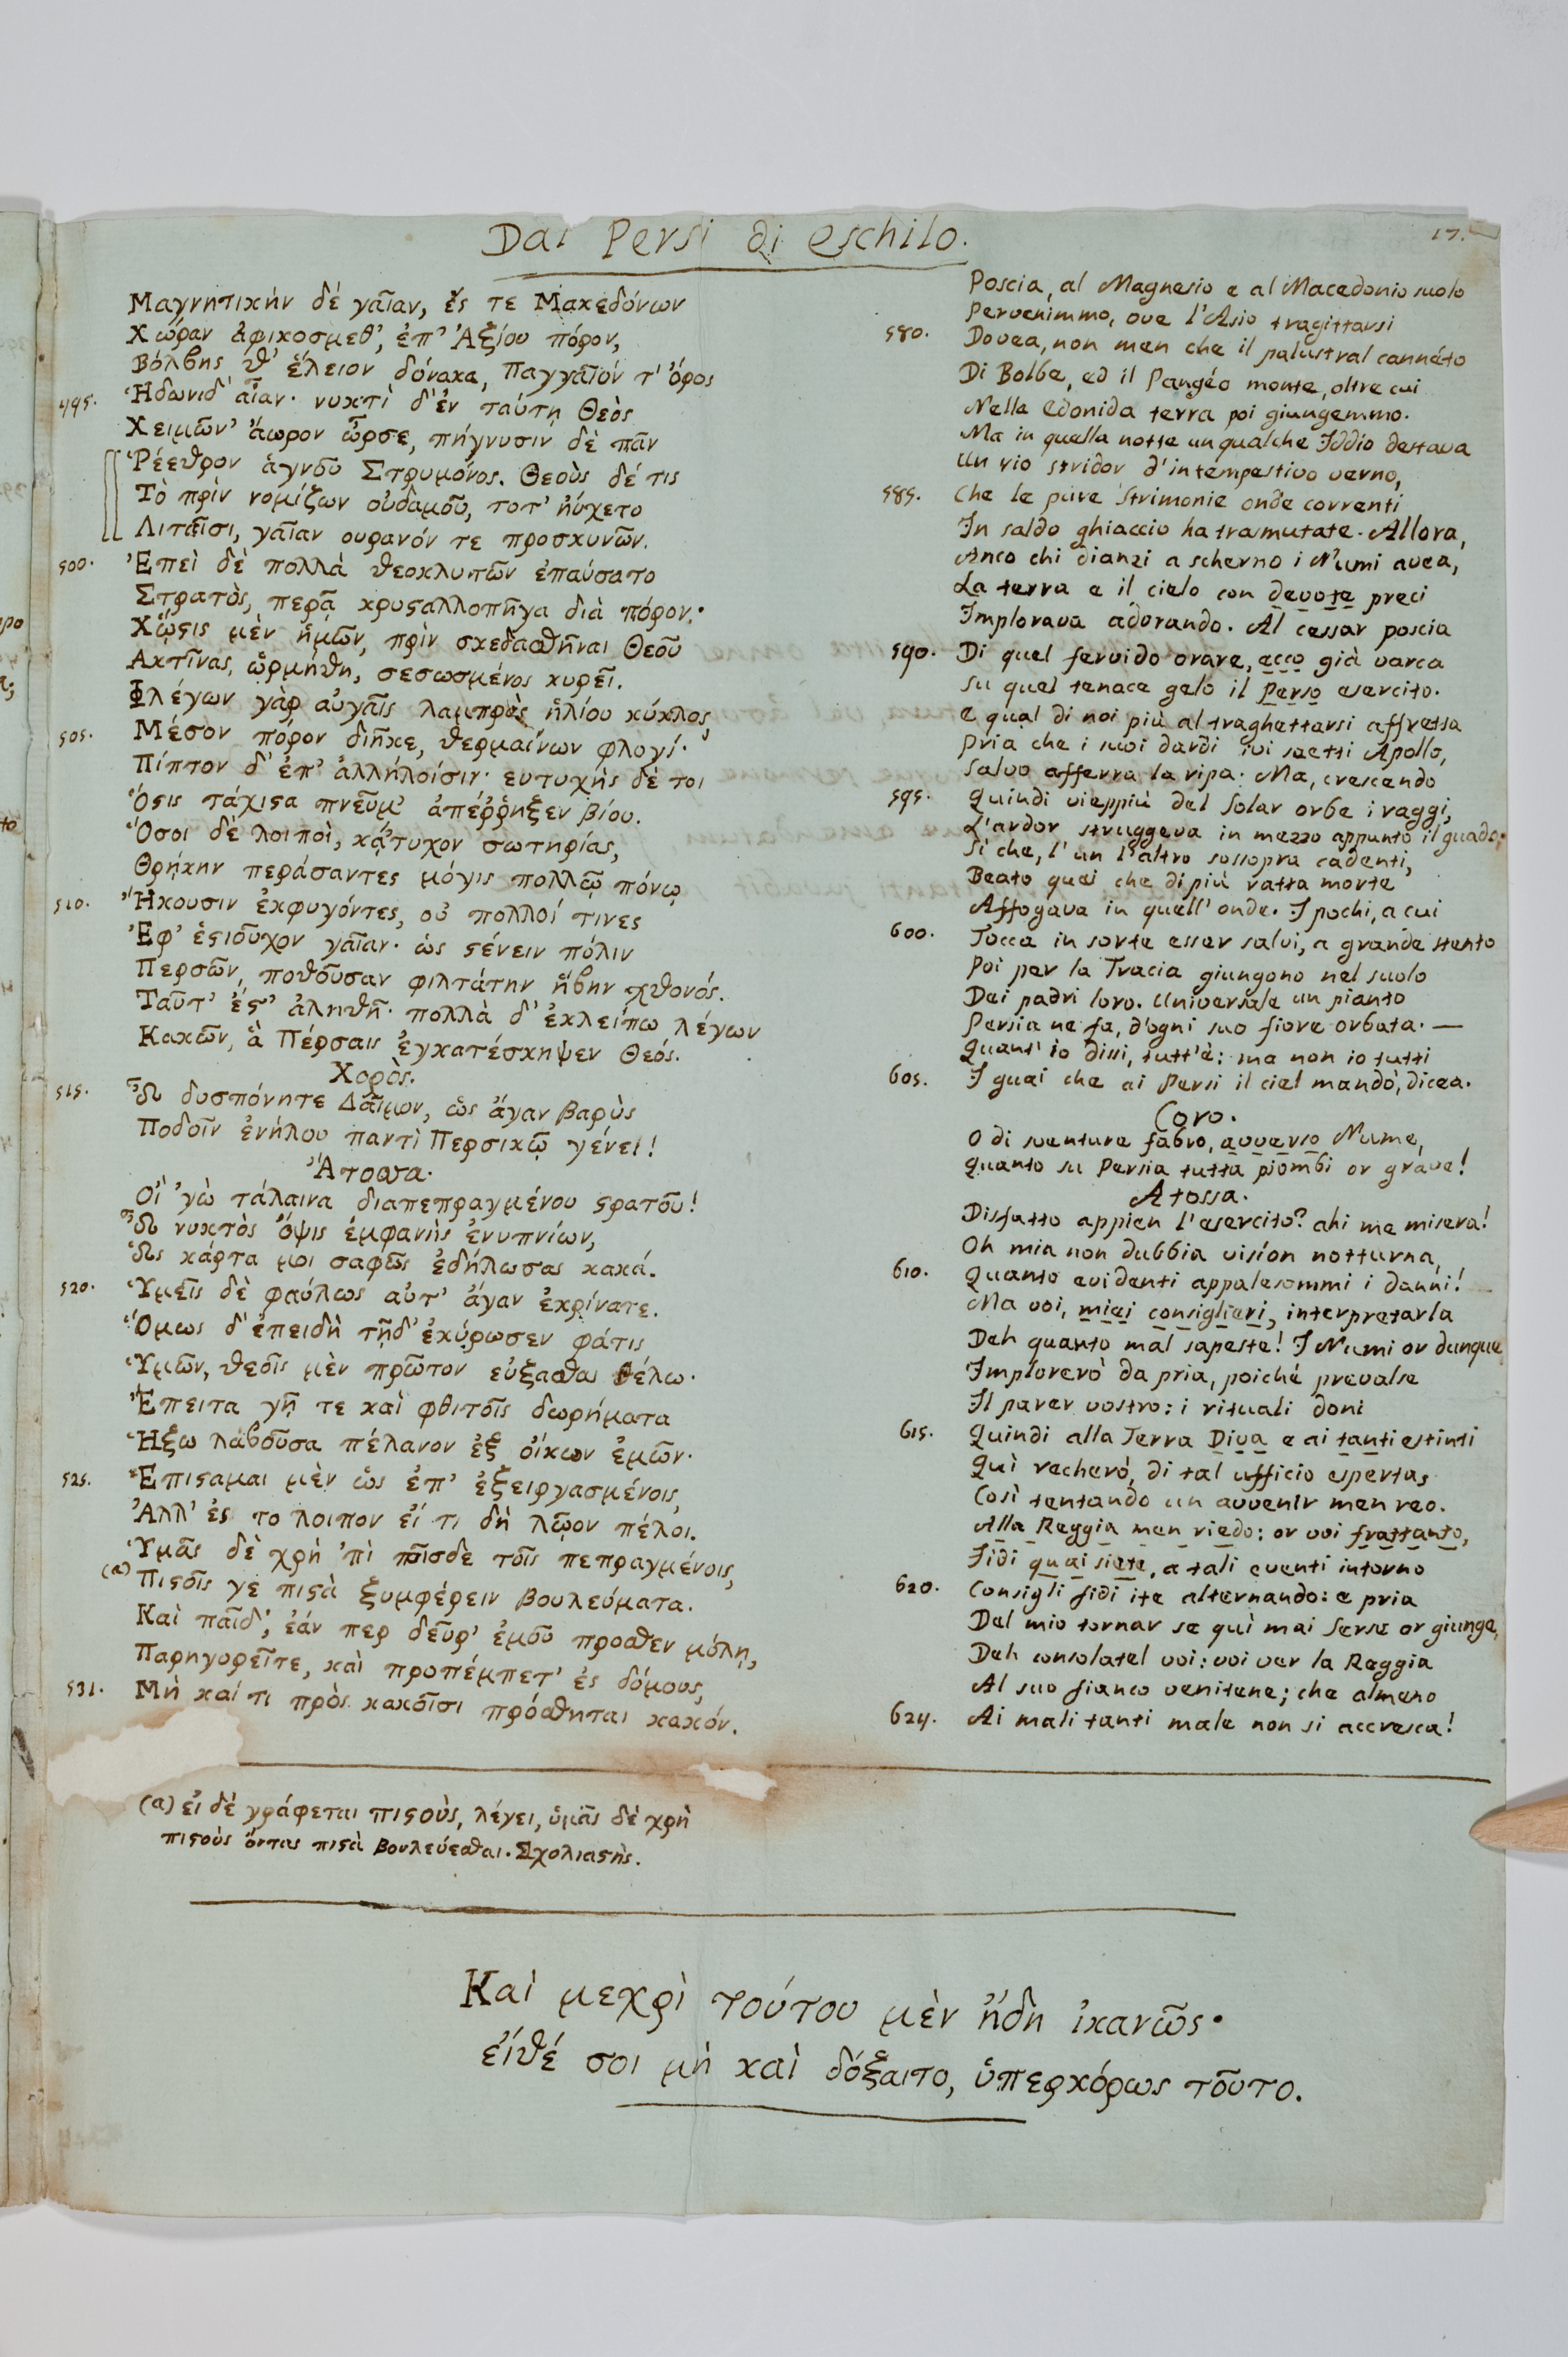 Dai Persi di Eschilo.
17.
Μαγνητικὴν δὲ γαῖαν, ἔς τε Μακεδόνων
Χώραν ἀφικοσμεθ', ἐπ' Ἀξίου πόρον,
Βόλβης θ' ἕλειον δόνακα, Παγγαῖόν τ' ὄρος
495. Ἡδωνίδ' αἶαν· νυκτὶ δ' ἐν ταύτῃ Θεὸς
Χειμῶν' ἄωρον ὦρσε, πήγνυσιν δὲ πᾶν
Ῥέεθρον ἁγνοῦ Στρυμόνος. Θεοὺς δέ τις
Τὸ πρὶν νομίζων οὐδαμοῦ, τοτ' ηὔχετο
Λιταῖσι, γαῖαν ουρανόν τε προσκυνῶν.
500. Ἐπεὶ δὲ πολλὰ θεοκλυτῶν ἐπαύσατο
Στρατὸς, περᾷ κρυςαλλοπῆγα διὰ πόρον·
Χᾥςις μὲν ἡμῶν, πρὶν σκεδασθῆναι Θεοῦ
Ακτῖνας, ὡρμήθη, σεσωσμένος κυρεῖ.
Φλέγων γὰρ αὐγαῖς λαμπρὸς ἡλίου κύκλος,
505. Μέσον πόρον διῆκε, θερμαίνων φλογί·
Πίπτον δ' ἐπ' ἀλλήλοισιν· ευτυχὴς δέ τοι
Ὅςις τάχιςα πνεῦμ' ἀπέῤῥηξεν βίου.
Ὅσοι δὲ λοιποὶ, κᾄτυχον σωτηρίας,
Θρῄκην περάσαντες μόγις πολλῷ πόνῳ
510. Ἥκουσιν ἐκφυγόντες, οὐ πολλοί τινες
Ἐφ' ἑςιοῦχον γαῖαν· ὡς ςένειν πόλιν
Περσῶν, ποθοῦσαν φιλτάτην ἥβην χθονός.
Ταῦτ' ἔς' ἀληθῆ· πολλὰ δ' ἐκλείπω λέγων
Κακῶν, ἃ Πέρσαις ἐγκατέσκηψεν Θεός.
Χορὸς.
515. Ὦ δυσπόνητε Δαῖμον, ὡς ἄγαν βαρὺς
Ποδοῖν ἐνήλου παντὶ Περσικῷ γένει!
Ἄτοσσα.
Οἲ 'γὼ τάλαινα διαπεπραγμένου ςρατοῦ!
Ὦ νυκτὸς ὄψις ἐμφανὴς ἐνυπνίων,
Ὡς κάρτα μοι σαφῶς ἐδήλωσας κακά.
520. Ὑμεῖς δὲ φαύλως αὐτ' ἄγαν ἐκρίνατε.
Ὅμως δ' ἐπειδὴ τῇδ' ἐκύρωσεν φάτις
Ὑμῶν, θεοῖς μὲν πρῶτον εὐξασθαι θέλω·
Ἔπειτα γῇ τε καὶ φθιτοῖς δωρήματα
Ἥξω λαβοῦσα πέλανον ἐξ οἴκων ἐμῶν·
525. Ἐπιςαμαι μὲν ὡς ἐπ' ἐξειργασμένοις,
Ἀλλ' ἐς το λοιπον εἴ τι δὴ λῷον πέλοι.
Ὑμᾶς δὲ χρὴ 'πὶ τοῖσδε τοῖς πεπραγμένοις,
(a) Πιςοῖς γε πιςὰ ξυμφέρειν βουλεύματα.
Καὶ παῖδ', ἐάν περ δεῦρ' ἐμοῦ προσθεν μόλῃ,
Παρηγορεῖτε, καὶ προπέμπετ' ἐς δόμους,
531. Μὴ καί τι πρὸς κακοῖσι πρόσθηται κακόν.
(a) εἰ δὲ γράφεται πιςοὺς, λέγει, ὑμᾶς δὲ χρὴ
πιςοὺς ὄντας πιςὰ βουλεύεσθαι. Σχολιαςὴς.
Poscia, al Magnesio e al Macedonio suolo
Pervenimmo, ove l'Asio tragittarsi
580. Dovea, non men che il palustral cannéto
Di Bolbe, ed il Pangéo monte, oltre cui
Nella Edonida terra poi giungemmo.
Ma in quella notte un qualche Iddio destava
Un rio stridor d'intempestivo verno,
585. Che le pure Strimonie onde correnti
In saldo ghiaccio ha tramutate. Allora,
Anco chi dianzi a scherno i Numi avea,
La terra e il cielo con devote preci
Implorava adorando. Al cessar poscia
590. Di quel fervido orare, ecco già varca
Su quel tenace gelo il Perso esercito.
E qual di noi più al traghettarsi affretta
Pria che i suoi dardi ivi saetti Apollo,
Salvo afferra la ripa. Ma, crescendo
595. Quindi vieppiù del Solar orbe i raggi,
L'ardor struggeva in mezzo appunto il guado;
Sì che, l'un l'altro sossopra cadenti,
Beato quei che di più ratta morte
Affogava in quell'onde. I pochi, a cui
600. Tocca in sorte esser salvi, a grande stento
Poi per la Tracia giungono nel suolo
Dei padri loro. Universale un pianto
Persia ne fa, d'ogni suo fiore orbata. —
Quant' io dissi, tutt'è: ma non io tutti
605. I guai che ai Persi il ciel mandò, dicea.
Coro.
O di sventure fabro, avverso Nume,
Quanto su Persia tutta piombi or grave!
Atossa.
Disfatto appien l'esercito? ahi me misera!
Oh mia non dubbia visíon notturna,
610. Quanto evidenti appalesommi i danni!
Ma voi, miei consiglieri, interpretarla
Deh quanto mal sapeste! I Numi or dunque
Implorerò da pria, poiché prevalse
Il parer vostro: i rituali doni
615. Quindi alla Terra Diva e ai tanti estinti
Quì recherò, di tal ufficio esperta;
Così tentando un avvenir men reo.
Alla Reggia men riedo: or voi frattanto,
Fidi quai siete, a tali eventi intorno
620. Consigli fidi ite alternando: e pria
Del mio tornar se quì mai Serse or giunge,
Deh consolatel voi: voi ver la Reggia
Al suo fianco venitene; che almeno
624. Ai mali tanti male non si accresca!
Καὶ μεχρὶ τούτου μὲν ἤδη ἱκανῶς·
εἴθέ σοι μὴ καὶ δόξαιτο, ὑπερκόρως τοῦτο.